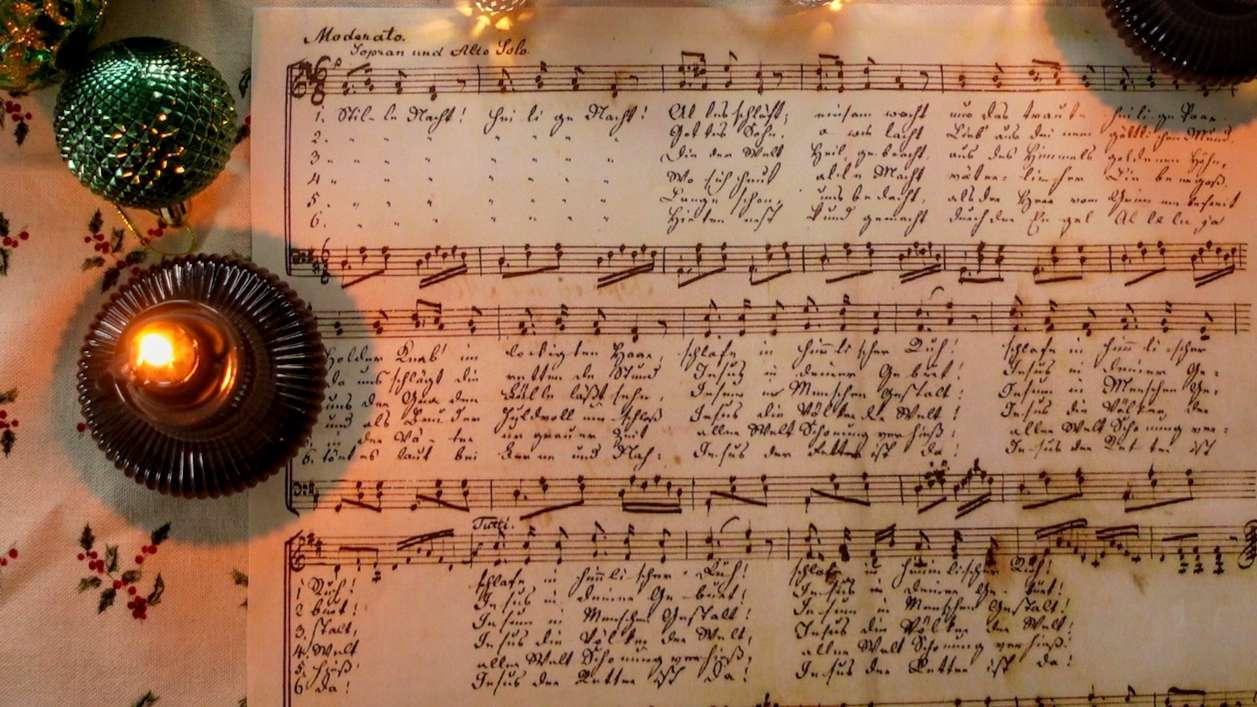 Moderato.
Sopran und Alto Solo.
1. Stil- le Nacht! Hei li ge Nacht! Al les schläft; einsam wacht nur das traute heili-ge Paar
2. " " " " " " Gottes Sohn! o wie lacht Lieb' aus dei nem göttlichen Mund.
3. " " " " " " Die der Welt Heil gebracht, aus des Himmels goldenen Höhn,
4. " " " " " " Wo sich heut alle Macht väter- licher Lie be ergoß,
5. " " " " " " Lange schon, uns bedacht, als der Herr vom Grim me befreit
6. " " " " " " Hirten erst kund gemacht durch der En gel Al le lu ja
Holder Knab' im lockigten Haar, schlafe in himmli scher Ruh! schlafe in himm li scher
da uns schlägt die retten de Stund Jesus in deiner Ge burt! Jesus in deiner Ge-
uns der Gna den Fülle läßt sehn, Jesum in Menschen Gestalt! Jesum in Menschen Ge-
und als Bruder Huldvoll um schloß Jesus die Völker der Welt! Jesus die Völker der
in der Vä- ter ur grauer Zeit aller Welt Schonung ver hieß! aller Welt Scho nung ver-
6. tönt es laut bei Ferne und Nah: Je-sus der Retter ist da! Je-sus der Ret- ter ist
Tutti.
1 Ruh! schlafe in himmli scher Ruh! schlafe in himmlischer Ruh!
2 burt! Je sus in deiner Ge- burt! Je- sus in deiner Ge- burt!
3. stalt, Je sum in Menschen Gestalt! Je- sum in Menschen Gestalt!
4. Welt Jesus die Völker der Welt, Jesus die Völker der Welt!
5. hieß! aller Welt Scho nung ver hieß, aller Welt Scho nung ver hieß!
6 da! Jesus der Retter ist da! Jesus der Retter ist da!